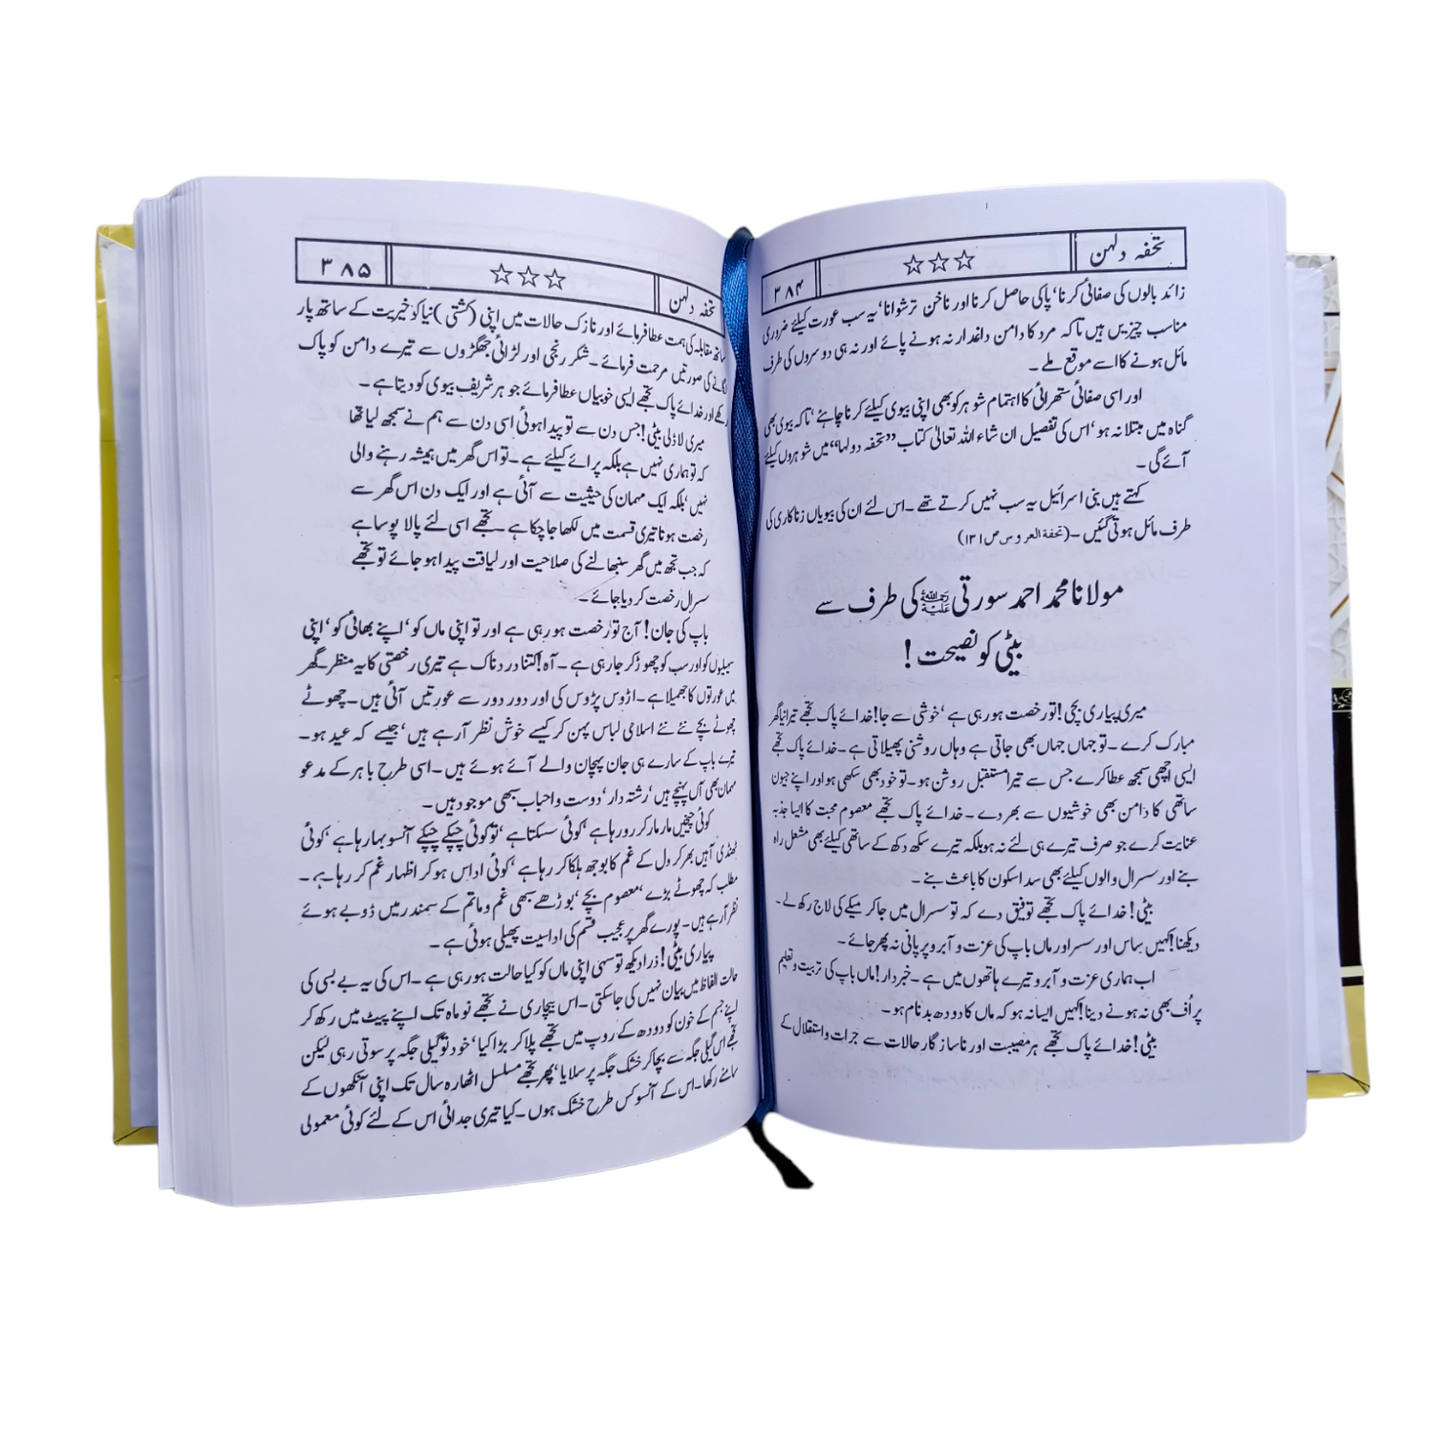 تحفہ دلہن ☆☆☆ ۳۸۴
زائد بالوں کی صفائی کرنا‘ پاکی حاصل کرنا اور ناخن ترشوانا‘ یہ سب عورت کیلئے ضروری
مناسب چیزیں ہیں تاکہ مرد کا دامن داغدار نہ ہونے پائے اور نہ ہی دوسروں کی طرف
مائل ہونے کا اسے موقع ملے۔
اور اسی صفائی ستھرائی کا اہتمام شوہر کو بھی اپنی بیوی کیلئے کرنا چاہئے‘ تاکہ بیوی بھی
گناہ میں مبتلا نہ ہو‘ اس کی تفصیل ان شاء اللہ تعالیٰ کتاب ”تحفہ دولہا“ میں شوہروں کیلئے
آئے گی۔
کہتے ہیں بنی اسرائیل یہ سب نہیں کرتے تھے۔ اس لئے ان کی بیویاں زناکاری کی
طرف مائل ہوتی گئیں۔ (تحفۃ العروس ص ۱۳۱)
مولانا محمد احمد سورتی رحمۃ اللہ علیہ کی طرف سے
بیٹی کو نصیحت!
میری پیاری بچی! تو رخصت ہو رہی ہے‘ خوشی سے جا! خدائے پاک تجھے تیرا نیا گھر
مبارک کرے۔ تو جہاں جہاں بھی جاتی ہے وہاں روشنی پھیلاتی ہے۔ خدائے پاک تجھے
ایسی اچھی سمجھ عطا کرے جس سے تیرا مستقبل روشن ہو۔ تو خود بھی سکھی ہو اور اپنے جیون
ساتھی کا دامن بھی خوشیوں سے بھر دے۔ خدائے پاک تجھے معصوم محبت کا ایسا جذبہ
عنایت کرے جو صرف تیرے ہی لئے نہ ہو بلکہ تیرے سکھ دکھ کے ساتھی کیلئے بھی مشعل راہ
بنے اور سسرال والوں کیلئے بھی سدا سکون کا باعث بنے۔
بیٹی! خدائے پاک تجھے توفیق دے کہ تو سسرال میں جا کر میکے کی لاج رکھ لے۔
دیکھنا! کہیں ساس اور سسر اور ماں باپ کی عزت و آبرو پر پانی نہ پھر جائے۔
اب ہماری عزت و آبرو تیرے ہاتھوں میں ہے۔ خبردار! ماں باپ کی تربیت و تعلیم
پر اُف بھی نہ ہونے دینا! کہیں ایسا نہ ہو کہ ماں کا دودھ بدنام ہو۔
بیٹی! خدائے پاک تجھے ہر مصیبت اور ناساز گار حالات سے جرات و استقلال کے
تحفہ دلہن ☆☆☆ ۳۸۵
ساتھ مقابلہ کی ہمت عطا فرمائے اور نازک حالات میں اپنی (کشتی) نیا کو خیریت کے ساتھ پار
لگانے کی صورتیں مرحمت فرمائے۔ شکر رنجی اور لڑائی جھگڑوں سے تیرے دامن کو پاک
رکھے اور خدائے پاک تجھے ایسی خوبیاں عطا فرمائے جو ہر شریف بیوی کو دیتا ہے۔
میری لاڈلی بیٹی! جس دن سے تو پیدا ہوئی اسی دن سے ہم نے سمجھ لیا تھا
کہ تو ہماری نہیں ہے بلکہ پرائے کیلئے ہے۔ تو اس گھر میں ہمیشہ رہنے والی
نہیں‘ بلکہ ایک مہمان کی حیثیت سے آئی ہے اور ایک دن اس گھر سے
رخصت ہونا تیری قسمت میں لکھا جا چکا ہے۔ تجھے اسی لئے پالا پوسا ہے
کہ جب تجھ میں گھر سنبھالنے کی صلاحیت اور لیاقت پیدا ہو جائے تو تجھے
سسرال رخصت کر دیا جائے۔
باپ کی جان! آج تو رخصت ہو رہی ہے اور تو اپنی ماں کو‘ اپنے بھائی کو‘ اپنی
سہیلیوں کو اور سب کو چھوڑ کر جا رہی ہے۔ آہ! کتنا دردناک ہے تیری رخصتی کا یہ منظر۔ گھر
میں عورتوں کا جھمیلا ہے۔ اڑوس پڑوس کی اور دور دور سے عورتیں آئی ہیں۔ چھوٹے
چھوٹے بچے نئے نئے اسلامی لباس پہن کر کیسے خوش نظر آ رہے ہیں‘ جیسے کہ عید ہو۔
تیرے باپ کے سارے ہی جان پہچان والے آئے ہوئے ہیں۔ اسی طرح باہر کے مدعو
مہمان بھی آن پہنچے ہیں‘ رشتہ دار‘ دوست و احباب سبھی موجود ہیں۔
کوئی چیخیں مار مار کر رو رہا ہے‘ کوئی سسکتا ہے‘ تو کوئی چپکے چپکے آنسو بہا رہا ہے‘ کوئی
ٹھنڈی آہیں بھر کر دل کے غم کا بوجھ ہلکا کر رہا ہے‘ کوئی اداس ہو کر اظہار غم کر رہا ہے۔
مطلب کہ چھوٹے بڑے‘ معصوم بچے‘ بوڑھے سبھی غم و ماتم کے سمندر میں ڈوبے ہوئے
نظر آ رہے ہیں۔ پورے گھر پر عجیب قسم کی اداسیت پھیلی ہوئی ہے۔
پیاری بیٹی! ذرا دیکھ تو سہی اپنی ماں کو کیا حالت ہو رہی ہے۔ اس کی یہ بے بسی کی
حالت الفاظ میں بیان نہیں کی جا سکتی۔ اس بیچاری نے تجھے نو ماہ تک اپنے پیٹ میں رکھ کر
اپنے جسم کے خون کو دودھ کے روپ میں تجھے پلا کر بڑا کیا‘ خود تو گیلی جگہ پر سوتی رہی لیکن
تجھے اس گیلی جگہ سے بچا کر خشک جگہ پر سلایا‘ پھر تجھے مسلسل اٹھارہ سال تک اپنی آنکھوں کے
سامنے رکھا۔ اس کے آنسو کس طرح خشک ہوں۔ کیا تیری جدائی اس کے لئے کوئی معمولی